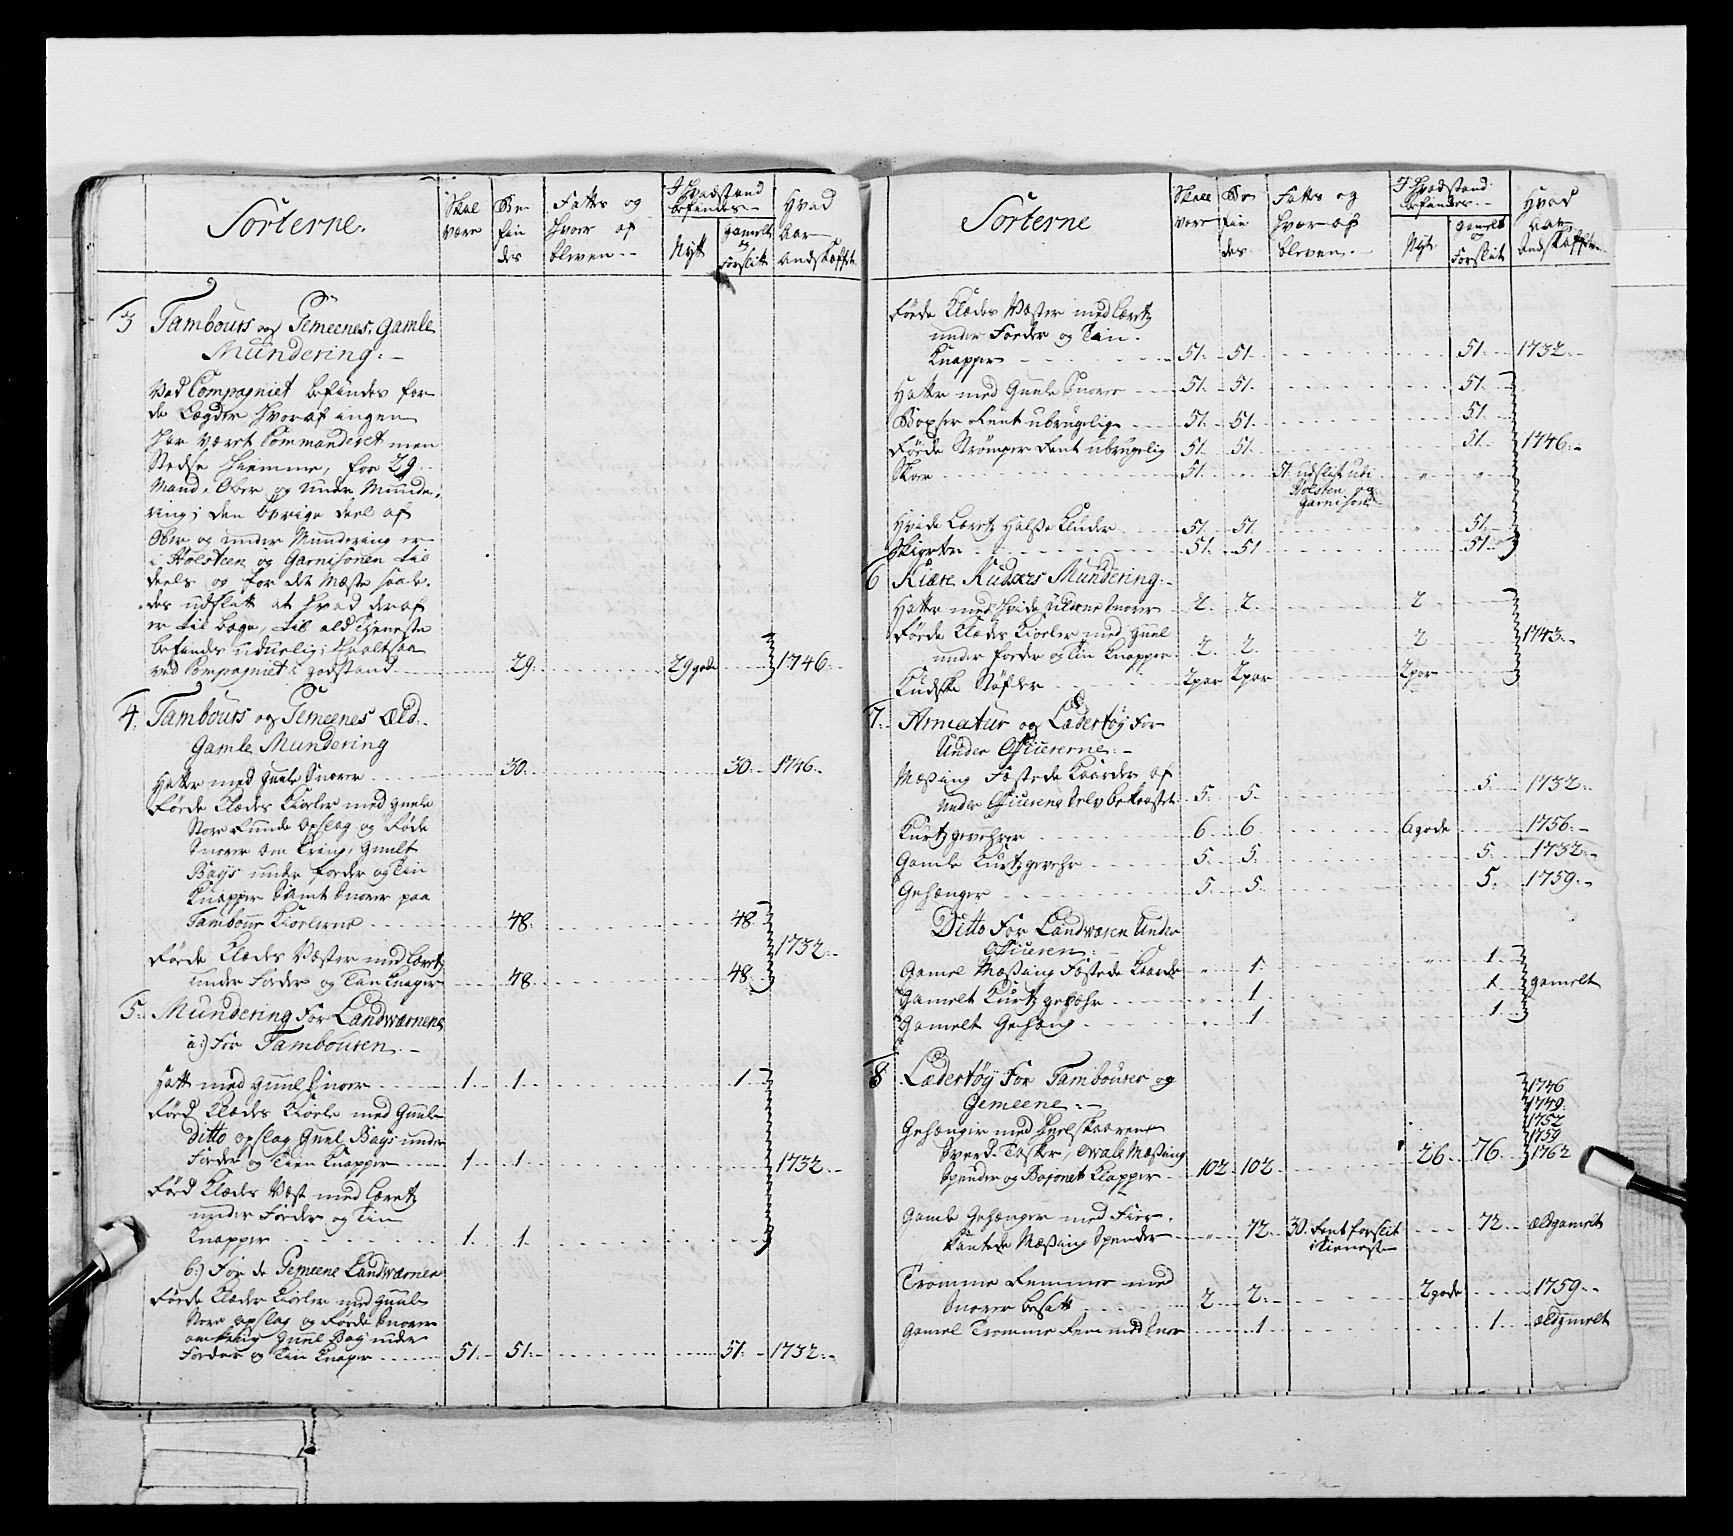 Sorterne.
Skal
være
Be-
fin
des
Fattes og
hvor af
bleven.-
I Hvadstand
befindes.-
Nytt
gamelt
og
Forslitt
Hvad
Aar
Andskaffet
3 Tambours og Gemeenes, Gamle
Mundering.-
Ved Compagniet befindes for
de Lægder hvoraf ingen
har været Commanderet men
Stedse hiemme, for 29
Mand, Ober og Under Munde-
ring; den øvrige deel af
Ober og under Mundering er
i Holsteen og Garnisonen til
deels og for det Mæste saale-
des udslitt at hvad deraf
er til bage, til ald Tieneste
befindes udurlig; Haaltsaa
ved Compagniet i god stand 29. 29 gode 1746.
4. Tambours og Gemeenes Æld-
Gamle Mundering
Hatte med Guule Snorer 30. 30. 1746.
Røde Klædes Kioler med guule
Store Runde opslag og Røde
Snorer om kring, guult
Bays under foeder og Tin
Knapper Samt Snorer paa
Tambour Kiolerne 48. 48.
1732.
Røde Klædes Væster med Lærets
Under Foeder og Tin Knaper 48 48
5. Mundering For Landværnene
a.) For Tambouren.-
Hatt med guul Snor 1. 1. 1.
Rød Klædes Kiole med Guule
Ditto opslag Guul Bays under
Foeder og Tien Knapper 1. 1. 1732.-
Rød Klædes Væst med Lærets
under Foeder og Tin
Knapper 1. 1.
b.) For de Gemeene Landværner
Røde Klæder Kioler med guule
Store opslag og Røde Snorer
omkring guul Bay under
Foeder og Tin Knaper 51. 51. 51. 1732.-
Sorterne
Skal
være
Be-
fin
des.
Fattes og
hvor af
bleven.-
I Hvadstand
befindes.-
Nytt
gamelt
og
Forslitt
Hvad
Aar
Andskaffet
Røde Klædes Væster med Lærets
under Foeder og Tin
Knapper 51. 51. 51. 1732.-
Hatte med Guule Snorer 51. 51. 51.
Boxser Rent ubrugelige 51. 51. 51.
Røde Strømper Rent ubrugelig 51. 51. 51. 1746.-
Skoe 51. 51. udslet udi
Holsten og
Garnison
Hvide Læretz Halsse Kluder 51. 51. 51.
Skiorter 51. 51 51.
6 Kiøre Kudsers Mundering.-
Hatte med Hvide Uldene Snorer 2. 2. 2
Røde Klædes Kioler med guul
under foeder og Tin Knapper 2. 2. 2 1743.-
Kudske Støfler 2 par 2 par 2 par
7. Armatur og Lædertøy For
Under Officererne.-
Mæssing Fæstede Kaarder af
Under Officererne Selv bekostet 5. 5. 5. 1732.-
Kurtz gevehrer 6 6 6 gode 1756.-
Gamle Kurtz gevehr 5. 5. 5. 1732.-
Gehænger 5. 5. 5. 1759.-
Ditto For Landværen Under
Officeren.
Gamel Mæssing Fæstede Kaarde 1. 1.
Gamelt Kurtz gevehr 1 1 gamelt
Gamelt Gehæng 1. 1.
8 Lædertøy For Tambourer og
Gemeene.-
1746
1749.
1752
1759
1762
Gehænger med
Sverd Tasker, Ovale Mæssing
Spender og Bajonet Klapper 102. 102 26 76.
Gamle Gehænger med Fier-
kantede Mæssing Spender 72. 30. Rent forslit
i Tieneste 72 ældgamelt
Tromme Remmer med
Snorer besatt 2 2. 2 gode 1759.-
Gamel Tromme Rem med Snor 1 1. ældgamelt